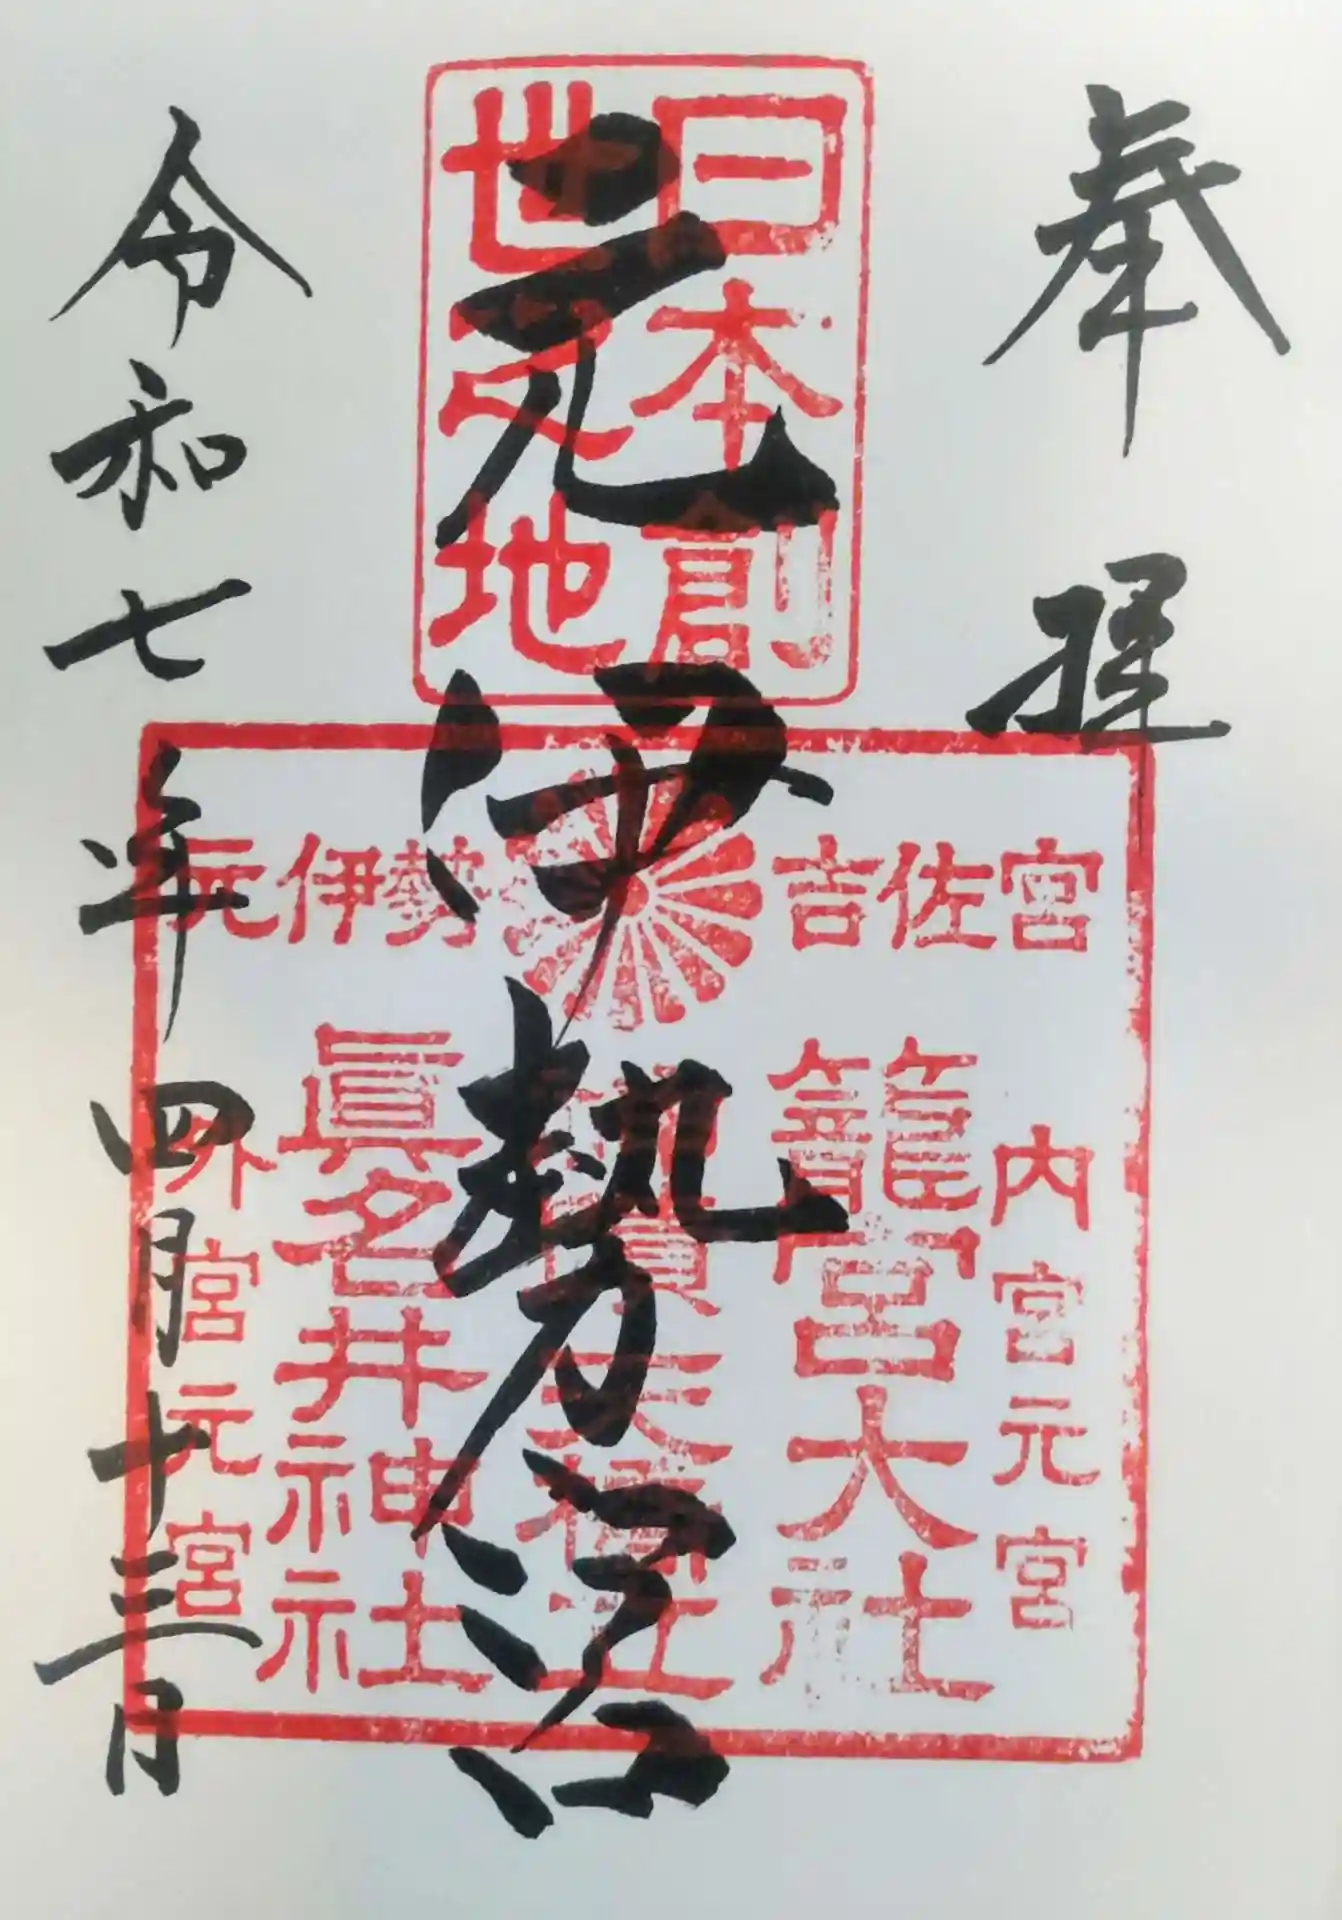 奉拝
日本創
世之地
元伊勢
元伊勢 吉佐宮
内宮元宮
籠宮大社
天橋立
眞名井神社
外宮元宮
令和七年四月十三日